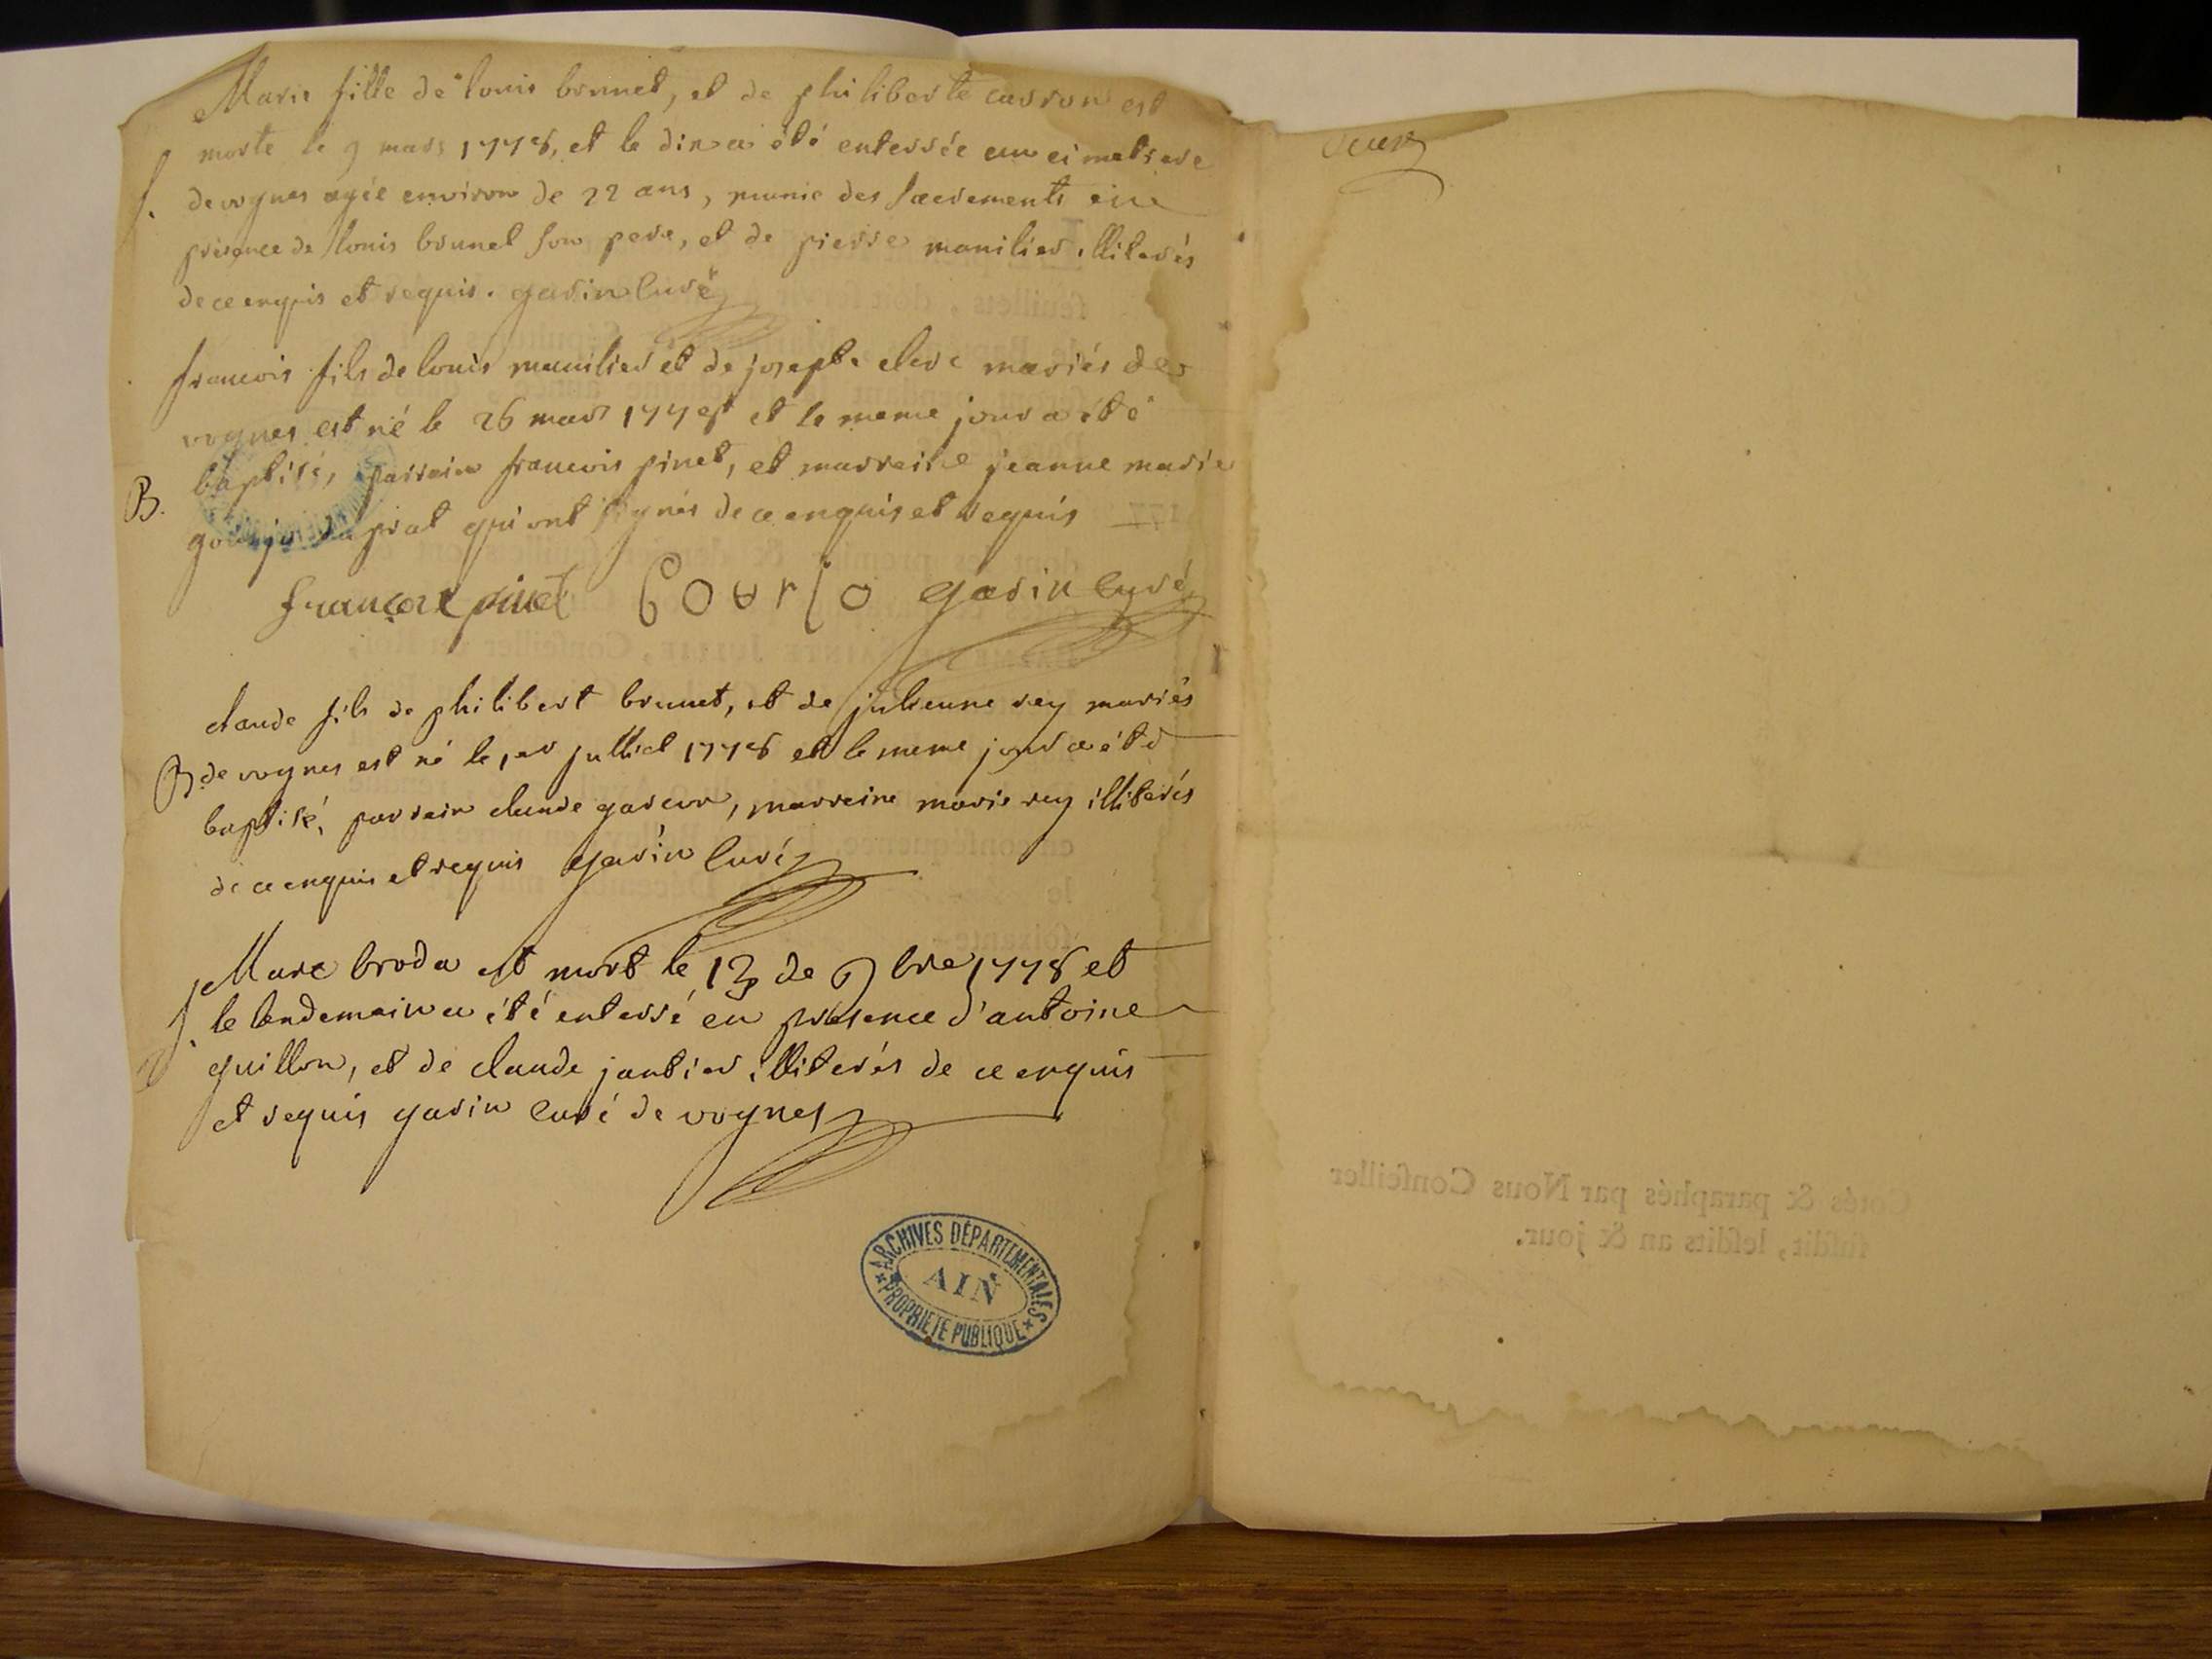 Marie fille de louis brunet, et de philiberte carron est
morte le 9 mars 1778, et le dix a été enterrée au cimetiere
S. de vognes agée environ de 22 ans, munie des sacrements en
présence de louis brunet son pere, et de pierre manilier illiterés
de ce enquis et requis. garin curé
francois fils de louis manilier et de josephe clerc mariés de
vognes est né le 26 mars 1778 et le meme jour a été
B. baptisé, parrain francois pinet, et marraine jeanne marie
prat qui ont signés de ce enquis et requis
francoe pinet garin curé
claude fils de philibert brunet, et de julienne rey mariés
B de vognes est né le 1er julliet 1778 et le meme jour a été
baptisé, parrain claude garcon, marraine marie rey illiterés
de ce enquis et requis garin curé
S. Marc broda est mort le 13 de 9bre 1778 et
le lendemain a été enterré en présence d'antoine
guillon, et de claude jantier illiterés de ce enquis
et requis garin curé de vognes
ARCHIVES DÉPARTEMENTALES
AIN
PROPRIETE PUBLIQUE
Cotés & paraphés par Nous Conseiller
susdit, lesdits an & jour.